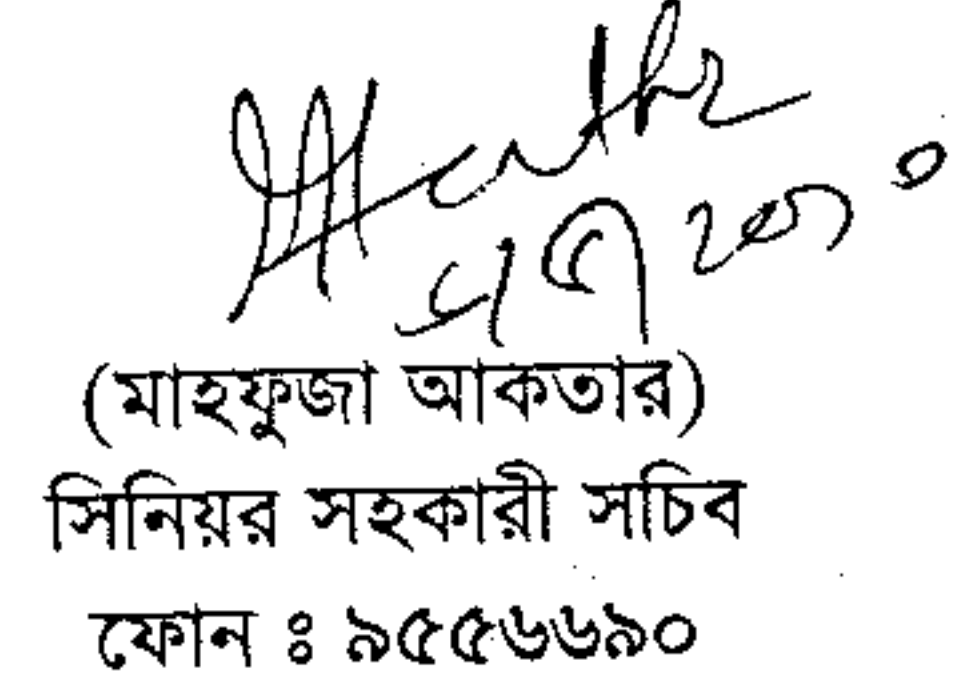 (মাহফুজা আকতার)
সিনিয়র সহকারী সচিব
ফোন ঃ ৯৫৫৬৬৯০